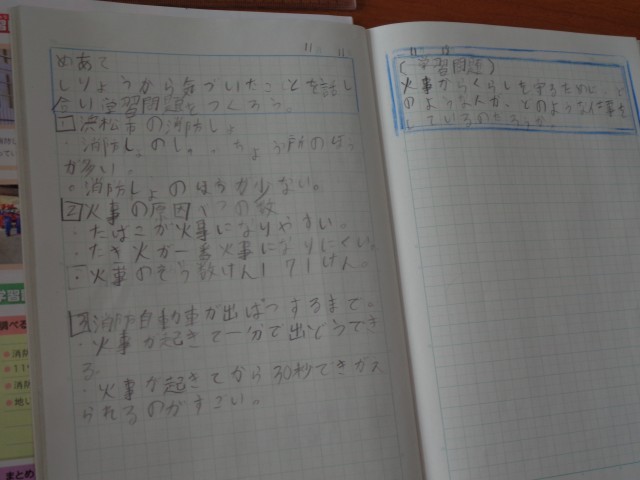 11 11
めあて
しりょうから気づいたことを話し
合い学習問題をつくろう。
1 浜松市の消防しょ
・消防し
が多い。
・消防しょのほうが少ない。
2 火事の原因
・たばこが火事になりやすい。
・たき火が一番火事になりにくい。
・火事のそう数けん171けん。
3 消防自動車が出ぱつするまで。
・火事が起きて一分で出どうでき
る
・火事が起きてから30秒できが
られるのがすごい。
(学習問題)
火事からくらしを守るために、ど
のような人が、どのような仕事を
しているのだろうか。
学習
調べる
消防
まとめ